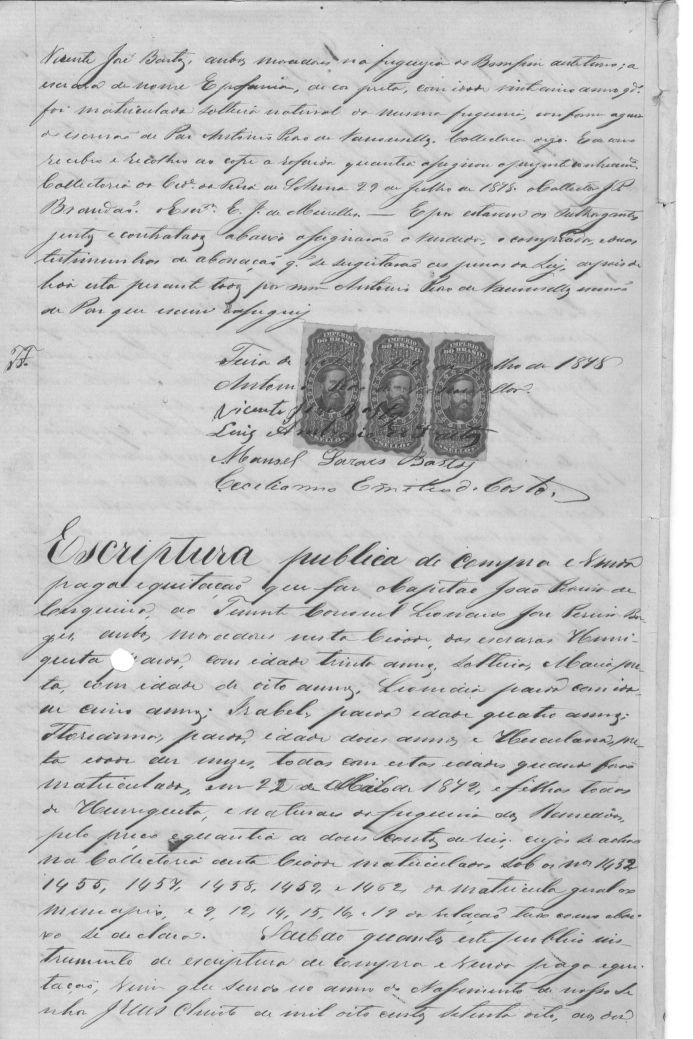 Vicente José Bastos, ambos moradores na freguezia do Bomfim desta termo; a
escrava de nome Epifania, de cor preta, com idade annos qdo
foi matriculada solteira natural da mesma freguezia, conforme
o escrivão de Paz Antonio de Vasconcellos. Collectoria
recebeo e recolheo ao cofre a referida quantia
Collectoria da Cide. da Feira de Sta. Anna 29 de Julho de 1878. O Collector J. P.
Brandão. O Escrm. E. J. de Meirelles. — E por estarem os outhorgantes
justos e contratados abaixo assignarão o vendedor, o comprador, e duas
testimunhas de abonação q. se sugeitarão as penas da Lei, depois de
lida esta perante todos por mim Antonio de Vasconcellos escrivão
de Paz que escrevi e assignei
Feira de Julho de 1878
Antonio Vasconcellos.
Vicente José Bastos
Luiz
Manoel Soares Bastos
Ceciliano da Costa.
IMPERIO DO BRASIL
SELLO
IMPERIO DO BRASIL
SELLO
IMPERIO DO BRASIL
SELLO
Escriptura publica de compra e venda
paga e quitação que faz o Capitão João de
Cerqueira, ao Tenente Coronel Leonardo José Pereira Bor-
ges, ambos moradores nesta Cidade, dos escravos Henri-
queta parda, com idade trinta annos, solteira, Maria pre-
ta, com idade de oito annos, Leonidia parda com ida-
de cinco annos; Izabel, parda idade quatro annos;
Floriano, pardo, idade dous annos, e Herculana, pre-
ta idade dez mezes, todos com estas idades quando forão
matriculados, em 22 de Maio de 1872, e filhos todos
de Henriqueta, e naturaes da freguezia dos Remedios,
pelo preço e quantia de dous contos de reis cujos se achão
na Collectoria desta Cidade matriculados sob os nos 1452
1455, 1457, 1458, 1459, e 1462, da matricula geral do
municipio, e 9, 12, 14, 15, 16, e 19 da relação tudo como abai-
xo se declara. Saibão quantos este publico ins-
trumento de escriptura de compra e venda paga e qui-
tação, virem que sendo no anno do Nascimento de nosso Se-
nhor Jesus Christo de mil oito centos setenta e oito, aos